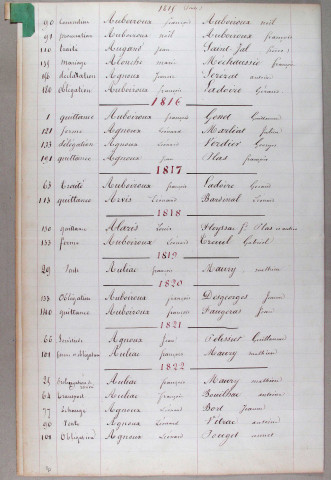 1815 (suite)
90 Convention Auboiroux françois Auboiroux noël
91 procuration Auboiroux noël Auboiroux françois
110 traité Augané jean Saint-Jal
135 Mariage Alouche marie Mechaussée françois
156 déclaration Agnoux Jeanne Serezat antoine
180 obligation Auboiroux françois Sadoire Gérard
1816
1 quittance Auboiroux françois Genet Guillaume
121 ferme Agnoux Léonard Marliat
133 délégation Agnoux Léonard Verdier Georges
191 quittance Agnoux jean Plas françois
1817
63 traité Auboiroux françois Sadoire Gérard
113 quittance Arvis Léonard Bardinal Léonard
1818
130 quittance Alaris Louis Pleyssac fe Plas
133 ferme Auboiroux Léonard Treuil Gabriel
1819
29 Vente Auliac françois Maury mathieu
1820
133 Obligation Auboiroux françois Desgeorges Jeanne
140 quittance Auboiroux françois Faugeras jean
1821
66 Agnoux Jean Pelissier Guillaume
101 ferme et obligation Auliac françois Maury mathieu
1822
25 Auliac françois Maury mathieu
64 transport Auliac françois Bouilhac antoine
77 échange Agnoux Léonard Bort Jeanne
96 Vente Agnoux Léonard Vitrac antoine
108 Obligation Agnoux Léonard Pouget annet